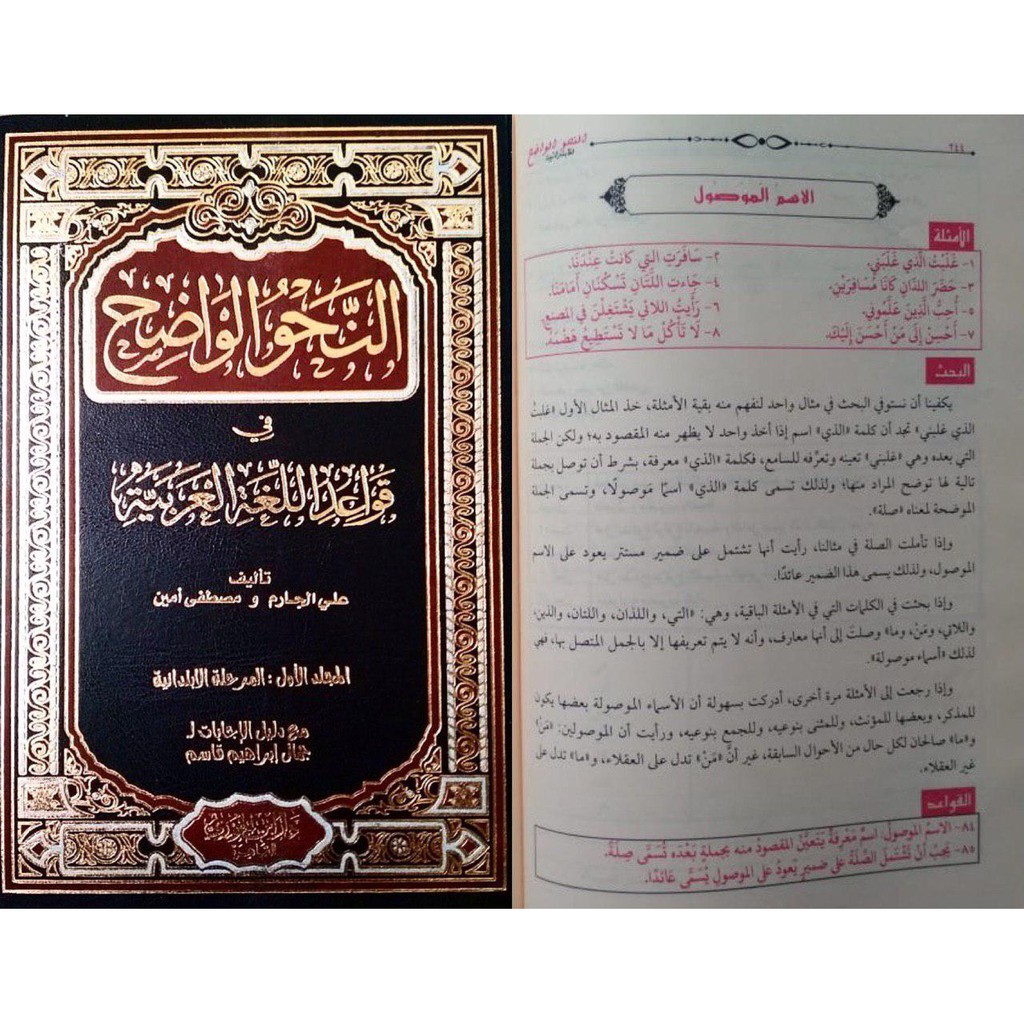 النَّحْوُ الوَاضِحُ
في
قَوَاعِدِ اللُّغَةِ الْعَرَبِيَّةِ
تأليف
علي الجارم و مصطفى أمين
المجلد الأول : المرحلة الابتدائية
مع دليل الإجابات لـ
جمال إبراهيم قاسم
النحو الواضح
٢٤٤
الاسم الموصول
الأمثلة
١- غَلَبْتُ الَّذِي غَلَبَنِي.
٢- سَافَرَتِ التِي كانتْ عِنْدَنَا.
٣- حَضَرَ اللذَانِ كَانَا مُسَافِرَيْنِ.
٤- جَاءتِ اللَّتَانِ تَسْكُنَانِ أَمَامَنَا.
٥- أُحِبُّ الَّذِينَ عَلَّمُونِي.
٦- رَأَيتُ اللاتي يَشْتَغِلْنَ في المصنعِ.
٧- أَحْسِنْ إلَى مَنْ أَحْسَنَ إلَيْكَ.
٨- لَا تَأكُلْ مَا لا تَسْتَطِيعُ هَضْمَهُ.
البحث
يكفينا أن نستوفي البحث في مثال واحد لنفهم منه بقية الأمثلة، خذ المثال الأول «غلبتُ
الذي غلبني» تجد أن كلمة «الذي» اسم إذا أخذ واحد لا يظهر منه المقصود به؛ ولكن الجملة
التي بعده وهي «غلبني» تعينه وتعرِّفه للسامع، فكلمة «الذي» معرفة، بشرط أن توصل بجملة
تالية لها توضح المراد منها؛ ولذلك تسمى كلمة «الذي» اسمًا مَوصولًا، وتسمى الجملة
الموضحة لمعناه «صلة».
وإذا تأملت الصلة في مثالنا، رأيت أنها تشتمل على ضمير مستتر يعود على الاسم
الموصول، ولذلك يسمى هذا الضمير عائدًا.
وإذا بحثت في الكلمات التي في الأمثلة الباقية، وهي: «التي، واللذان، واللتان، والذين،
واللاتي، ومَنْ، وما» وصلتَ إلى أنها معارف، وأنه لا يتم تعريفها إلا بالجمل المتصل بها، فهي
لذلك «أسماء موصولة».
وإذا رجعت إلى الأمثلة مرة أخرى، أدركت بسهولة أن الأسماء الموصولة بعضها يكون
للمذكر، وبعضها للمؤنث، وللمثنى بنوعيه، وللجمع بنوعيه، ورأيت أن الموصولين: «مَنْ»
و«ما» صالحان لكل حال من الأحوال السابقة، غير أنَّ «مَنْ» تدل على العقلاء، و«ما» تدل على
غير العقلاء.
القواعد
٨٤- الاسمُ الموصولُ: اسمُ مَعْرِفَةٌ يَتَعَيَّنُ المقصودُ منه بجملةٍ بَعْدَه تُسَمَّى صِلَةً.
٨٥- يجبُ أنْ تَشْتَمِلَ الصِّلَةُ على ضميرٍ يَعُودُ على الموصولِ يُسَمَّى عَائدًا.